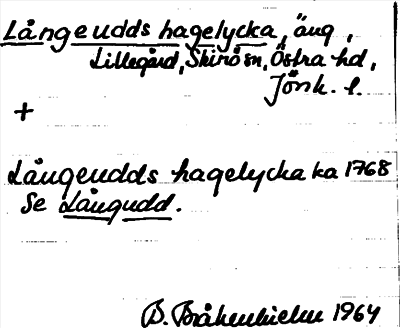 Långeudds hagelycka, äng,
Lillegård, Skirö sn, Östra hd,
Jönk. l.
+
Långeudds hagelycka ka 1768
Se Långudd.
B. Bråkenhielm 1964